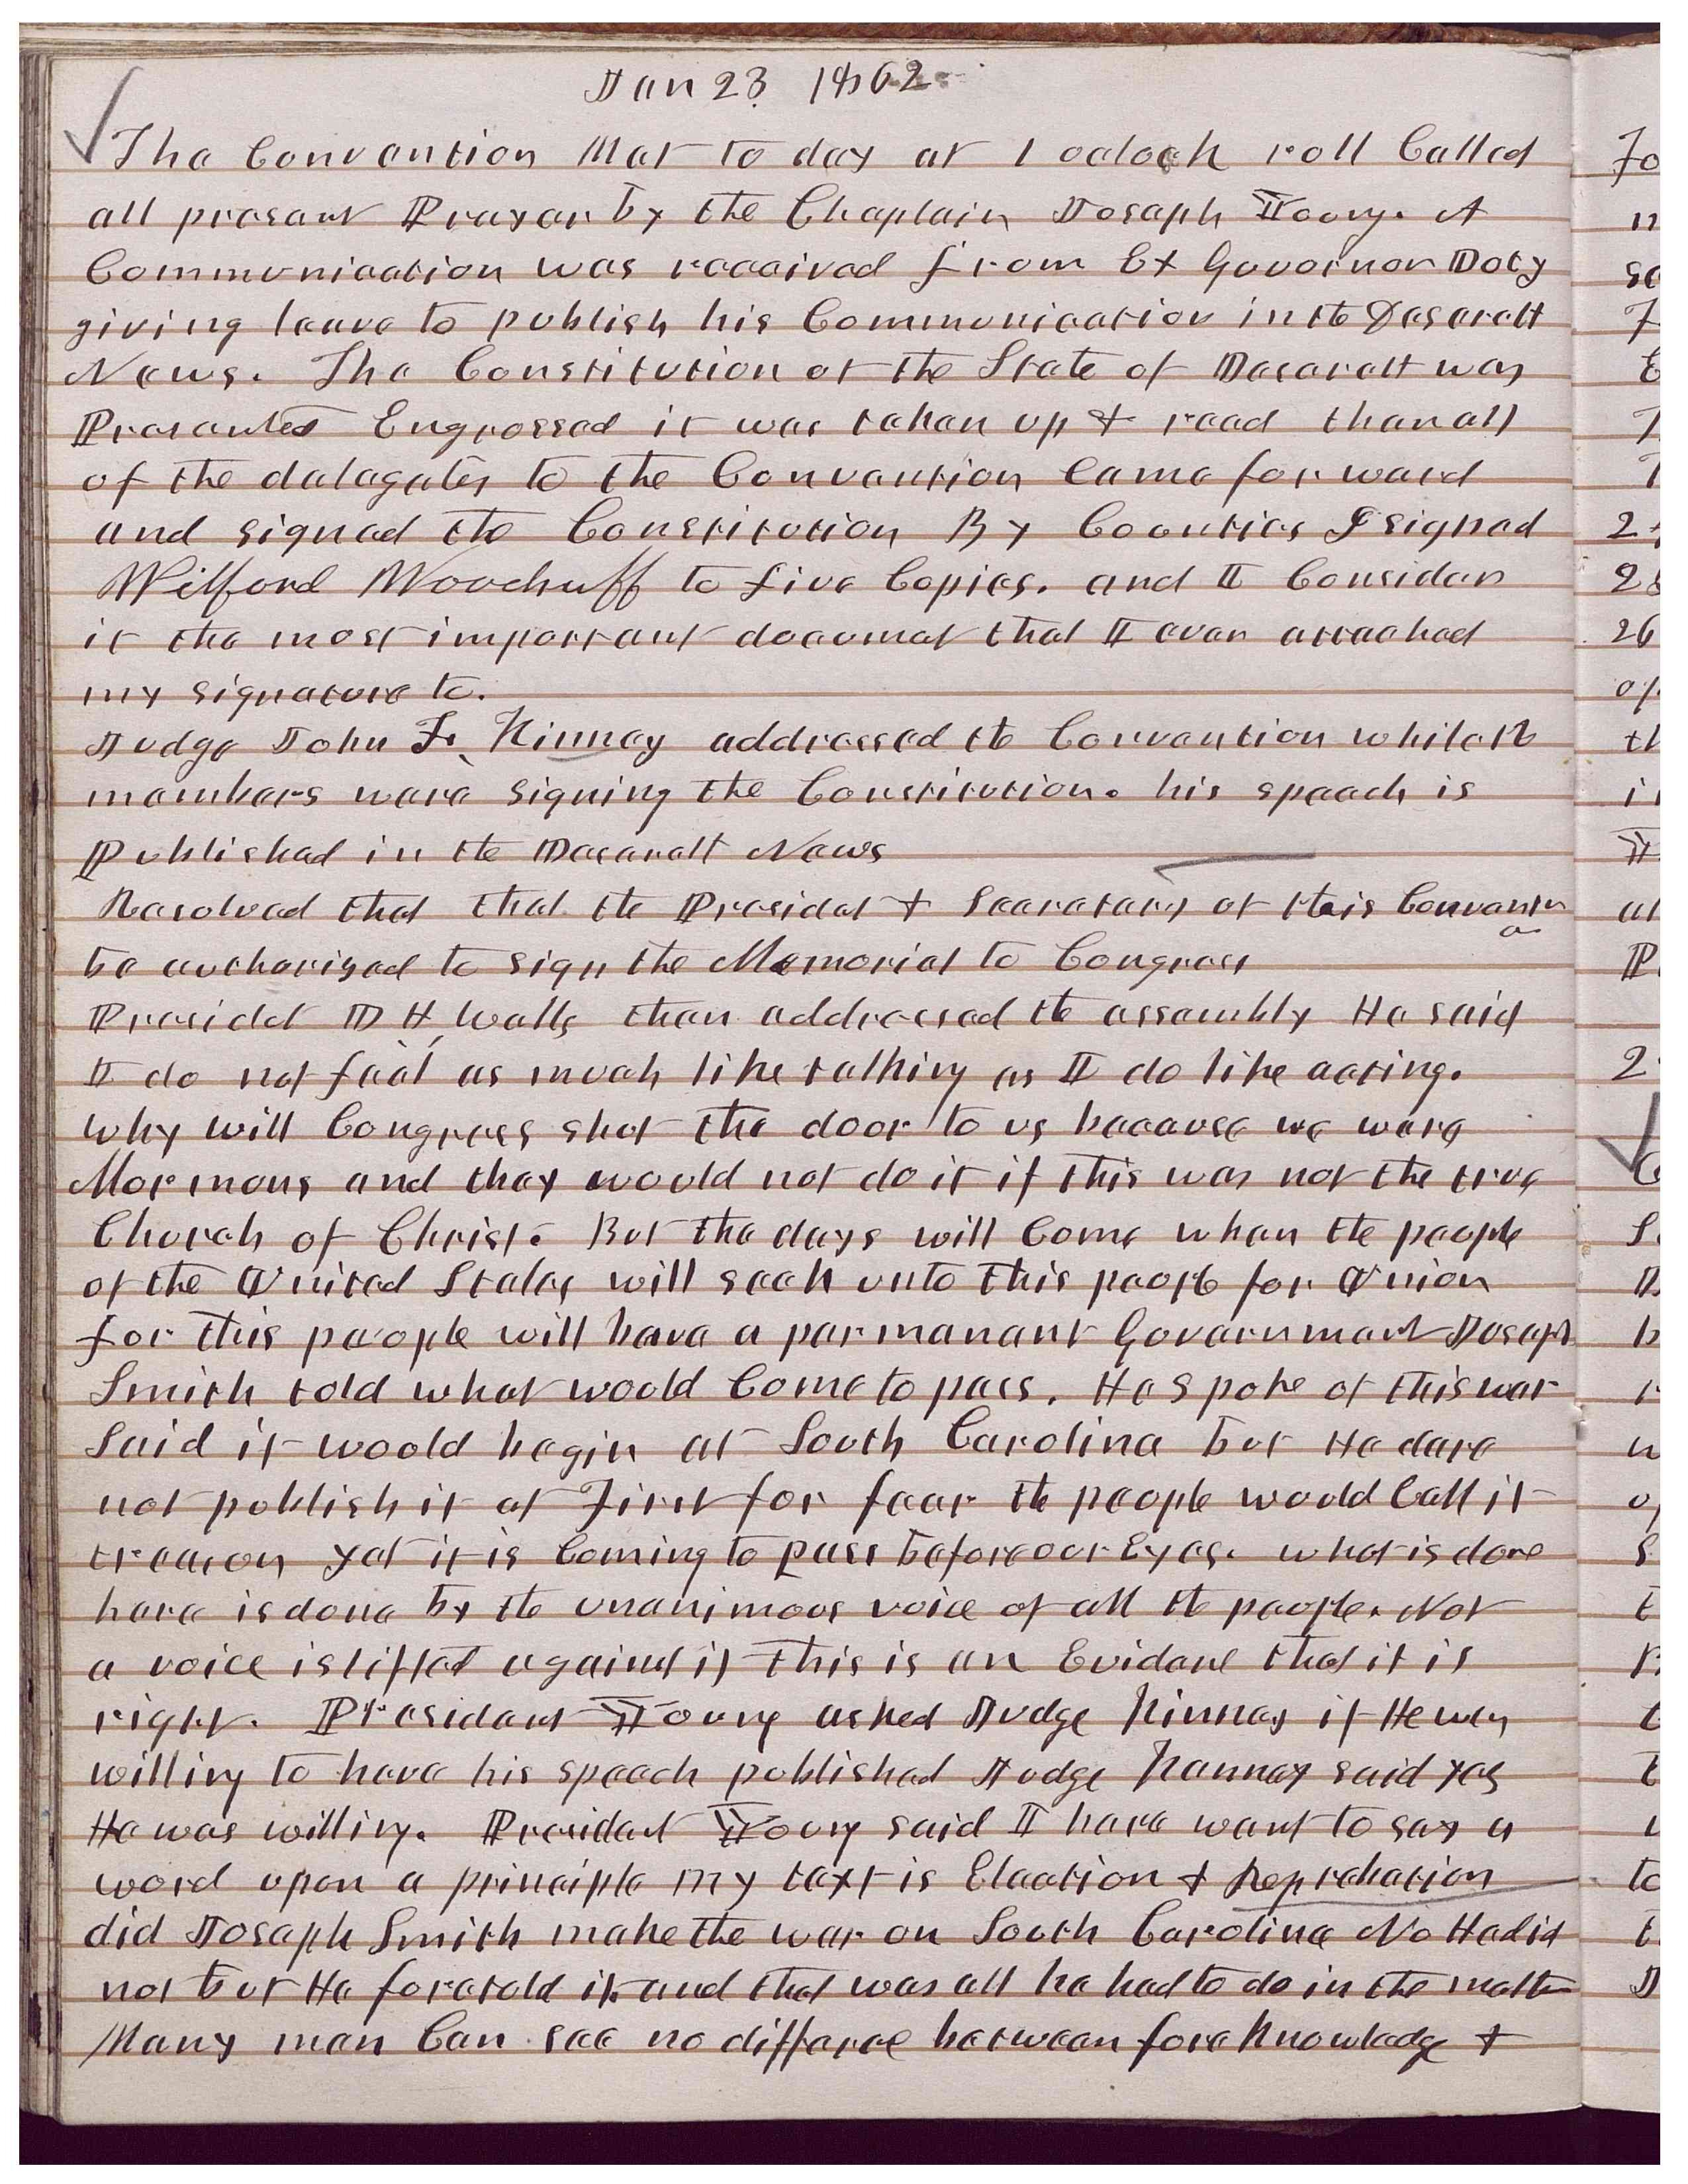 Jan 23 1862
The Convention Met to day at 1 oclock roll Called
all present Prayer by the Chaplain Joseph Young. A
Communication was received from Ex Governor Doty
giving leave to publish his Communication in the Deserett
News. The Constitution of the State of Deserett was
Presented Engrossed it was taken up & read then all
of the delagates to the Convention Came forward
and signed the Constitution By Counties I signed
Wilford Woodruff to five Copies. and I Consider
it the most important documet that I ever attached
my signature to.
Judge John F. Kinney addressed the Convention while the
members were signing the Constitution. his speech is
Published in the Deserett News
Resolved that that the Presidet & Secretary of this Convention
be autherised to sign the Memorial to Congress
Presidet D H Wells then addressed the assembly He said
I do not feel as much like talking as I do like acting.
why will Congress shut the door to us because we were
Mormons and they would not do it if this was not the true
Church of Christ. But the days will Come when the people
of the United States will seek unto this people for Union
for this people will have a permanant Government Joseph
Smith told what would Come to pass. He spoke of this war
Said it would begin at South Carolina but He dare
not publish it at First for fear the people would Call it
treason yet it is Coming to pass before our Eyes. what is done
here is done by the unanimous voice of all the people. Not
a voice is lifted against it This is an Evidence that it is
right. President Young asked Judge Kinney if He was
willing to have his speech published Judge Kenney said yes
He was willing. President Young said I here want to say a
word upon a principle my text is Election & Reprobation
did Joseph Smith make the war on South Carolina No He did
not but He foretold it and that was all he had to do in the matter
Many men Can see no differee between fore knowledge &